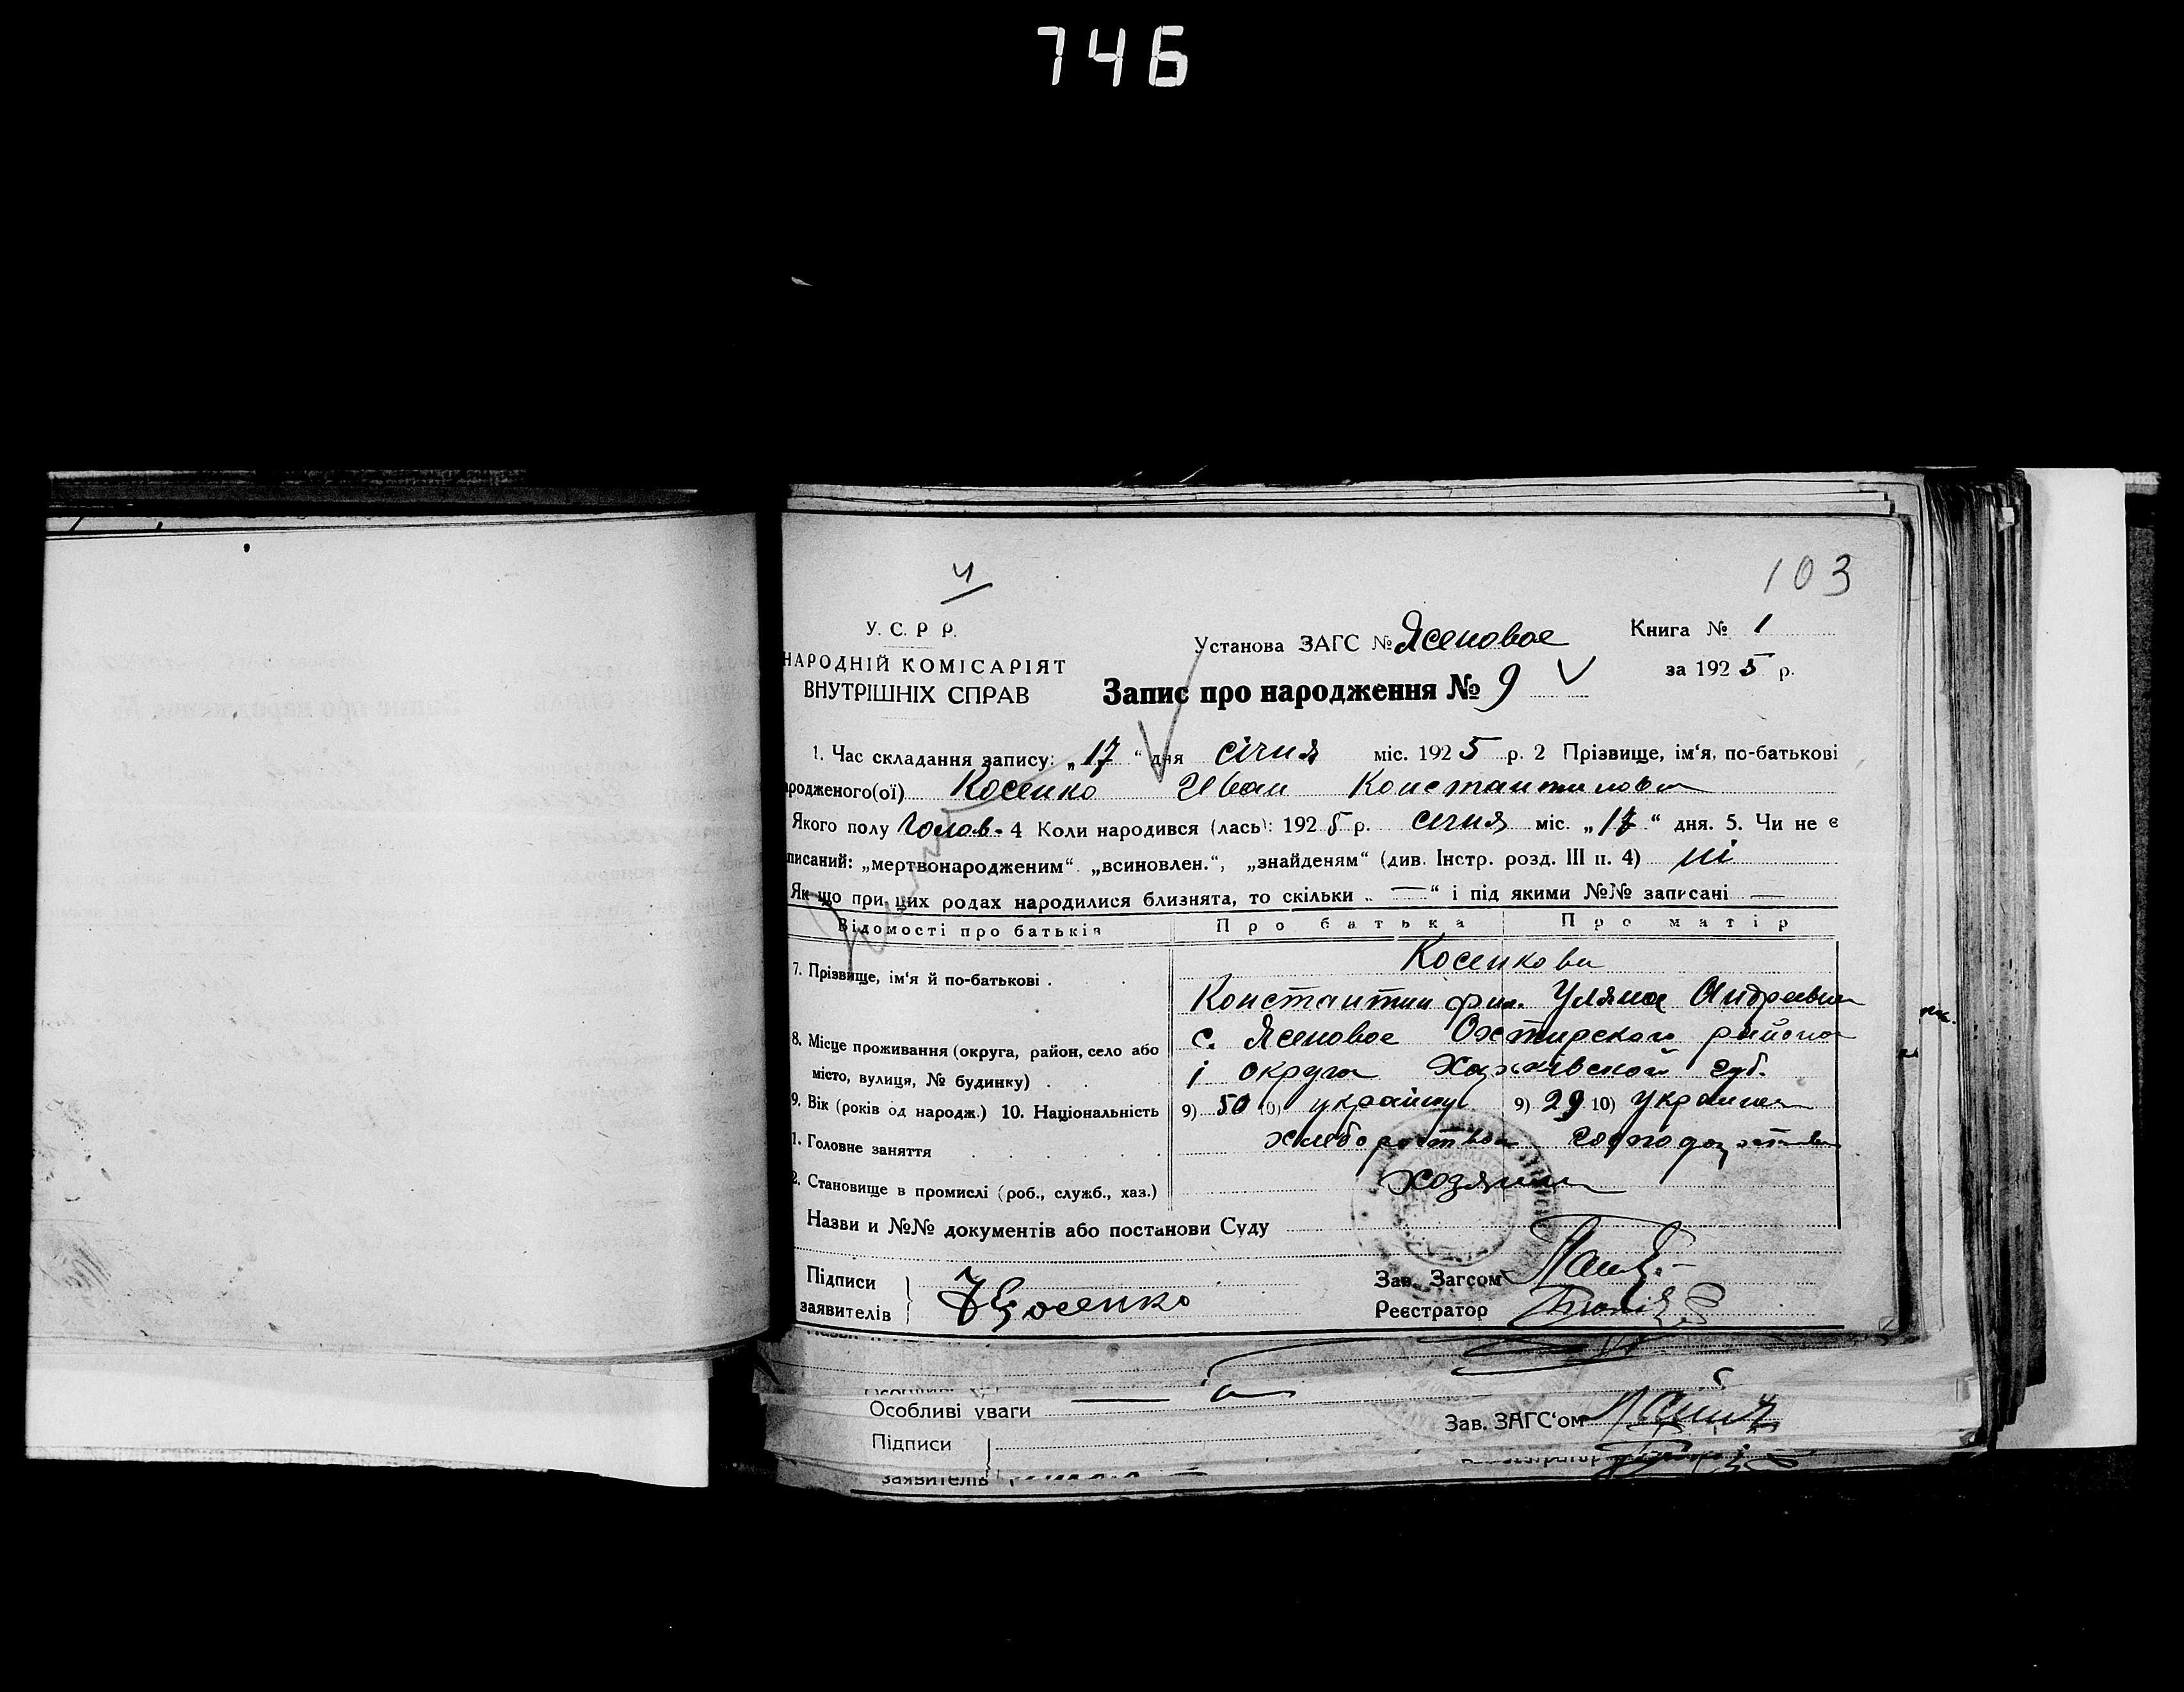 746
103
У. С. Р Р.
НАРОДНІЙ КОМІСАРІЯТ
ВНУТРІШНІХ СПРАВ
Установа ЗАГС № Ясеновое
Книга № 1
за 1925 р.
Запис про народження № 9
1. Час складання запису: „17“ дня січня міс. 1925 р. 2 Прізвище, ім‘я, по-батькові
родженого(ої) Косенко Иван Константинович
Якого полу 4 Коли народився (лась): 1925 р. січня міс. „17“ дня. 5. Чи не є
писаний: „мертвонародженим“ „всиновлен.“, „знайденям“ (див. Інстр. розд. III п. 4) ні
Як що при цих родах народилися близнята, то скільки „ — “ і під якими №№ записані —
Відомості про батьків Про батька Про матір
7. Прізвище, ім‘я й по-батькові . Косенкови
Константин Уляна Андреевна
8. Місце проживання (округа, район, село або с. Ясеновое Охтирского района
місто, вулиця, № будинку) . і округа Харківской губ.
9. Вік (років од народж.) 10. Національність 9) 50 10) україн 9) 29 10) Украин
1. Головне заняття хлеборобство
2. Становище в промислі (роб., служб., хаз.) хозяин
Назви и №№ документів або постанови Суду
Підписи
заявителів Косенко
Зав. Загсом
Реєстратор
Особливі уваги —
Зав. ЗАГС‘ом
Підписи
заявителів